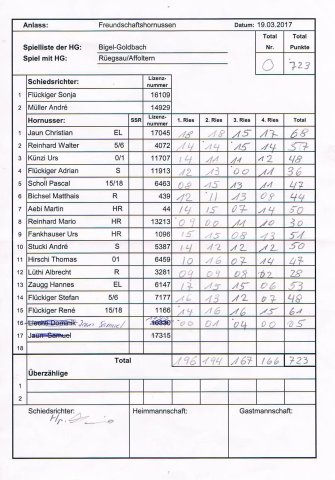 Anlass: Freundschaftshornussen Datum: 19.03.2017
Total Total
Spielliste der HG: Bigel-Goldbach Nr. Punkte
Spiel mit HG: Rüegsau/Affoltern 0 723
Schiedsrichter: Lizenz-nummer
1 Flückiger Sonja 16109
2 Müller André 14929
Hornusser: SSR Lizenz-nummer 1. Ries 2. Ries 3. Ries 4. Ries Total
1 Jaun Christian EL 17045 18 18 15 17 68
2 Reinhard Walter 5/6 4072 14 14 15 14 57
3 Künzi Urs 0/1 11707 14 11 11 12 48
4 Flückiger Adrian S 11913 12 13 00 11 36
5 Scholl Pascal 15/18 6463 08 15 13 11 47
6 Bichsel Matthais R 439 12 11 13 08 44
7 Aebi Martin HR 44 14 15 07 14 50
8 Reinhard Mario HR 13213 09 00 11 10 30
9 Fankhauser Urs HR 1096 15 15 08 13 51
10 Stucki André S 5387 14 12 12 12 50
11 Hirschi Thomas 01 6459 10 16 07 14 47
12 Lüthi Albrecht R 3281 09 09 08 02 28
13 Zaugg Hannes EL 6147 17 15 15 06 53
14 Flückiger Stefan 5/6 7177 16 13 12 07 48
15 Flückiger René 15/18 1166 14 16 16 15 61
16 Jaun Samuel 00 01 04 00 05
17 Jaun Samuel 17315
Total 196 194 167 166 723
Überzählige
1
2
Schiedsrichter: Heimmannschaft: Gastmannschaft: